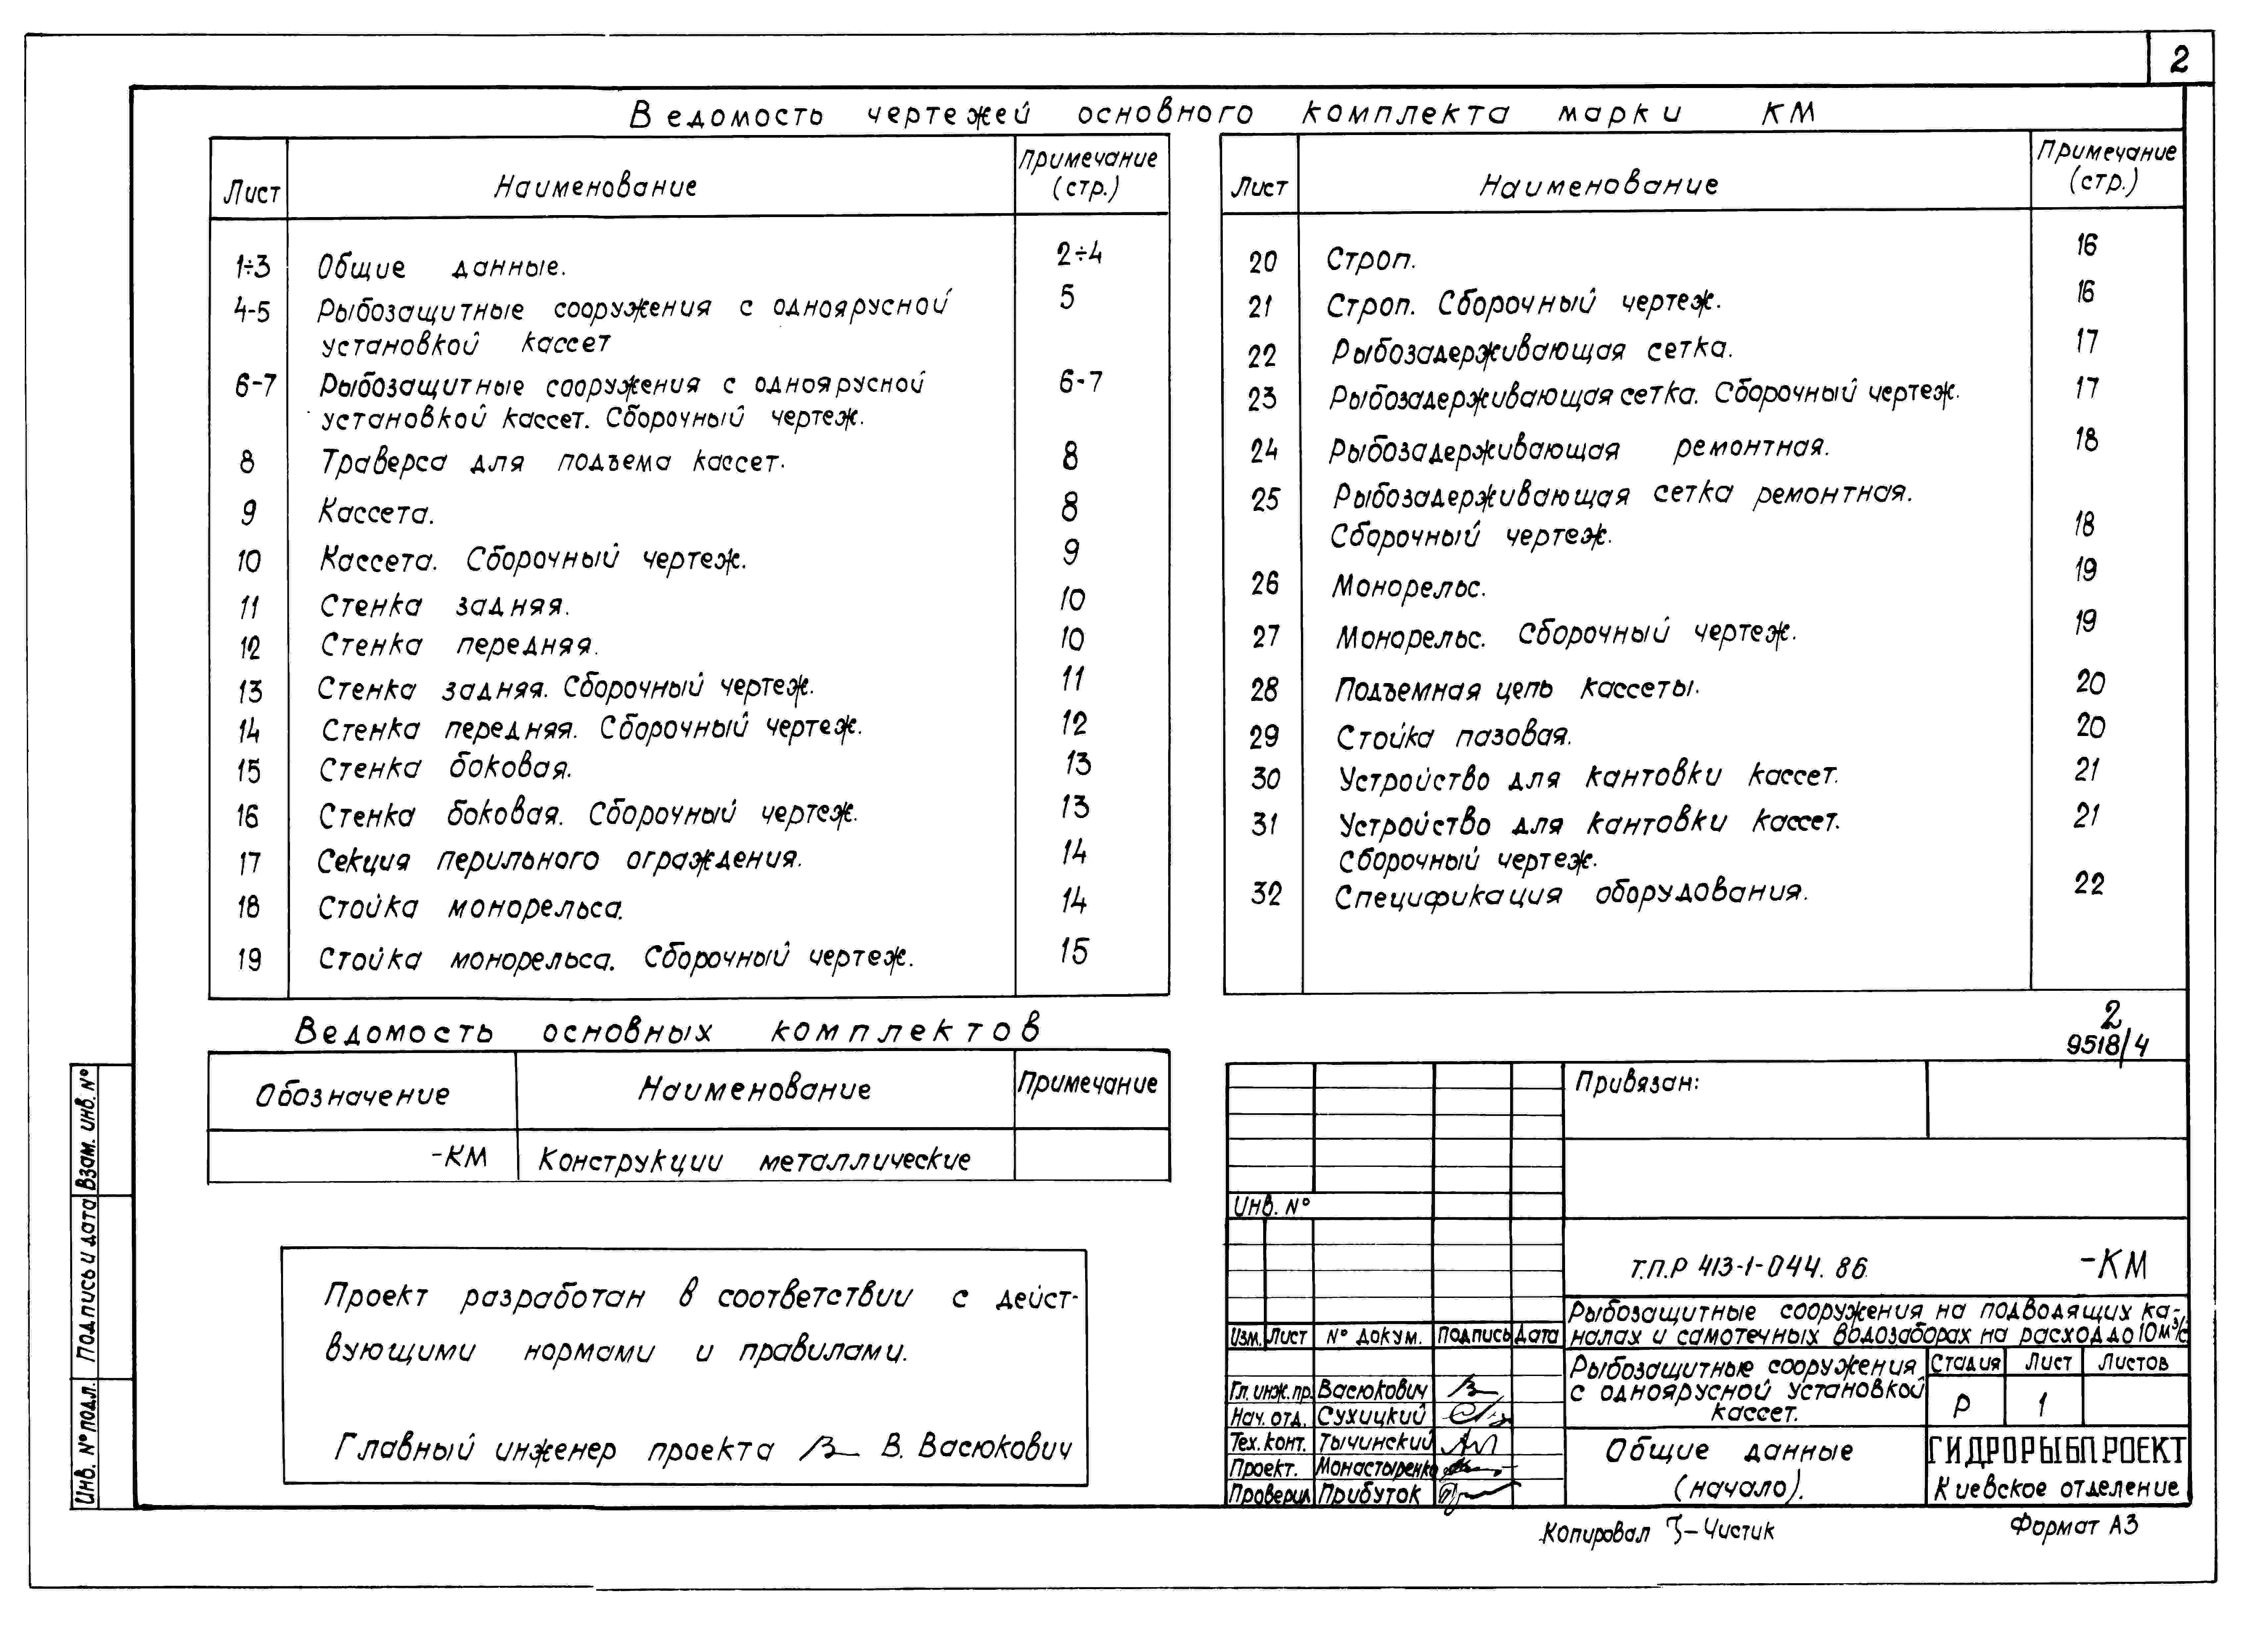 2
Ведомость чертежей основного комплекта марки КМ
Лист Наименование Примечание (стр.)
1÷3 Общие данные. 2÷4
4-5 Рыбозащитные сооружения с одноярусной 5
установкой кассет
6-7 Рыбозащитные сооружения с одноярусной 6-7
установкой кассет. Сборочный чертеж.
8 Траверса для подъема кассет. 8
9 Кассета. 8
10 Кассета. Сборочный чертеж. 9
11 Стенка задняя. 10
12 Стенка передняя. 10
13 Стенка задняя. Сборочный чертеж. 11
14 Стенка передняя. Сборочный чертеж. 12
15 Стенка боковая. 13
16 Стенка боковая. Сборочный чертеж. 13
17 Секция перильного ограждения. 14
18 Стойка монорельса. 14
19 Стойка монорельса. Сборочный чертеж. 15
Лист Наименование Примечание (стр.)
20 Строп. 16
21 Строп. Сборочный чертеж. 16
22 Рыбозадерживающая сетка. 17
23 Рыбозадерживающая сетка. Сборочный чертеж. 17
24 Рыбозадерживающая ремонтная. 18
25 Рыбозадерживающая сетка ремонтная.
Сборочный чертеж. 18
26 Монорельс. 19
27 Монорельс. Сборочный чертеж. 19
28 Подъемная цепь кассеты. 20
29 Стойка пазовая. 20
30 Устройство для кантовки кассет. 21
31 Устройство для кантовки кассет. 21
Сборочный чертеж.
32 Спецификация оборудования. 22
Ведомость основных комплектов
Обозначение Наименование Примечание
-КМ Конструкции металлические
Проект разработан в соответствии с дейст-
вующими нормами и правилами.
Главный инженер проекта В. Васюкович
2
9518/4
Привязан:
Инв. №
Т.П.Р 413-1-044.86 -КМ
Рыбозащитные сооружения на подводящих ка-
налах и самотечных водозаборах на расход до 10 м³/с
Изм. Лист № докум. Подпись Дата
Гл. инж. пр. Васюкович
Нач. отд. Сухицкий
Тех. конт. Тычинский
Проект. Монастыренко
Проверил Прибуток
Рыбозащитные сооружения
с одноярусной установкой
кассет.
Стадия Лист Листов
Р 1
Общие данные
(начало).
ГИДРОРЫБПРОЕКТ
Киевское отделение
Копировал Чистик
Формат А3
Взам. инв. №
Подпись и дата
Инв. № подл.